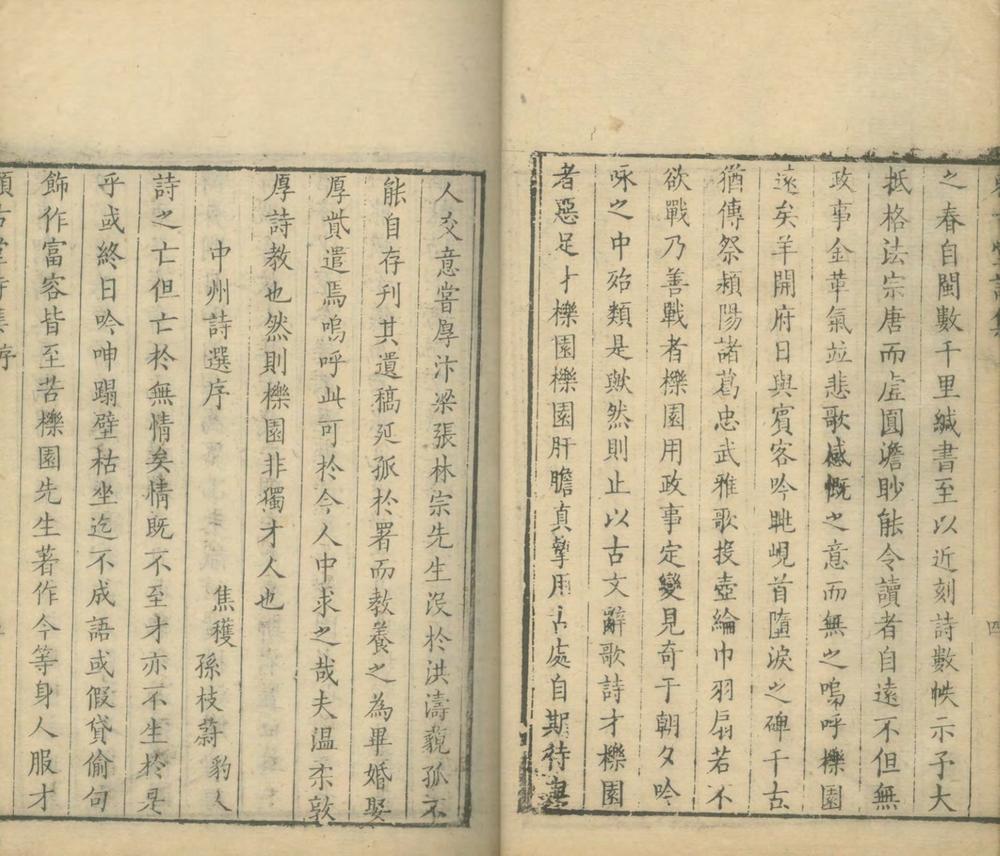 之春自閩數千里緘書至以近刻詩數帙示予大
抵格法宗唐而虛圓澹眇能令讀者自遠不但無
政事金革氣並悲歌感慨之意而無之嗚呼櫟園
遠矣羊開府日與賓客吟眺峴首墮淚之碑千古
猶傳祭潁陽諸葛忠武雅歌投壺綸巾羽扇若不
欲戰乃善戰者櫟園用政事定變見奇于朝夕吟
咏之中殆類是歟然則止以古文辭歌詩才櫟園
者惡足才櫟園櫟園肝膽真摯用古處自期待
人交意嘗厚汴梁張林宗先生沒於洪濤藐孤不
能自存刊其遺稿延孤於署而教養之為畢婚娶
厚貲遣焉嗚呼此可於今人中求之哉夫溫柔敦
厚詩教也然則櫟園非獨才人也
中州詩選序
焦穫 孫枝蔚 豹人
詩之亡但亡於無情矣情既不至才亦不生於是
乎或終日吟呻蹋壁枯坐迄不成語或假貸偷句
飾作富容皆至苦櫟園先生著作今等身人服才